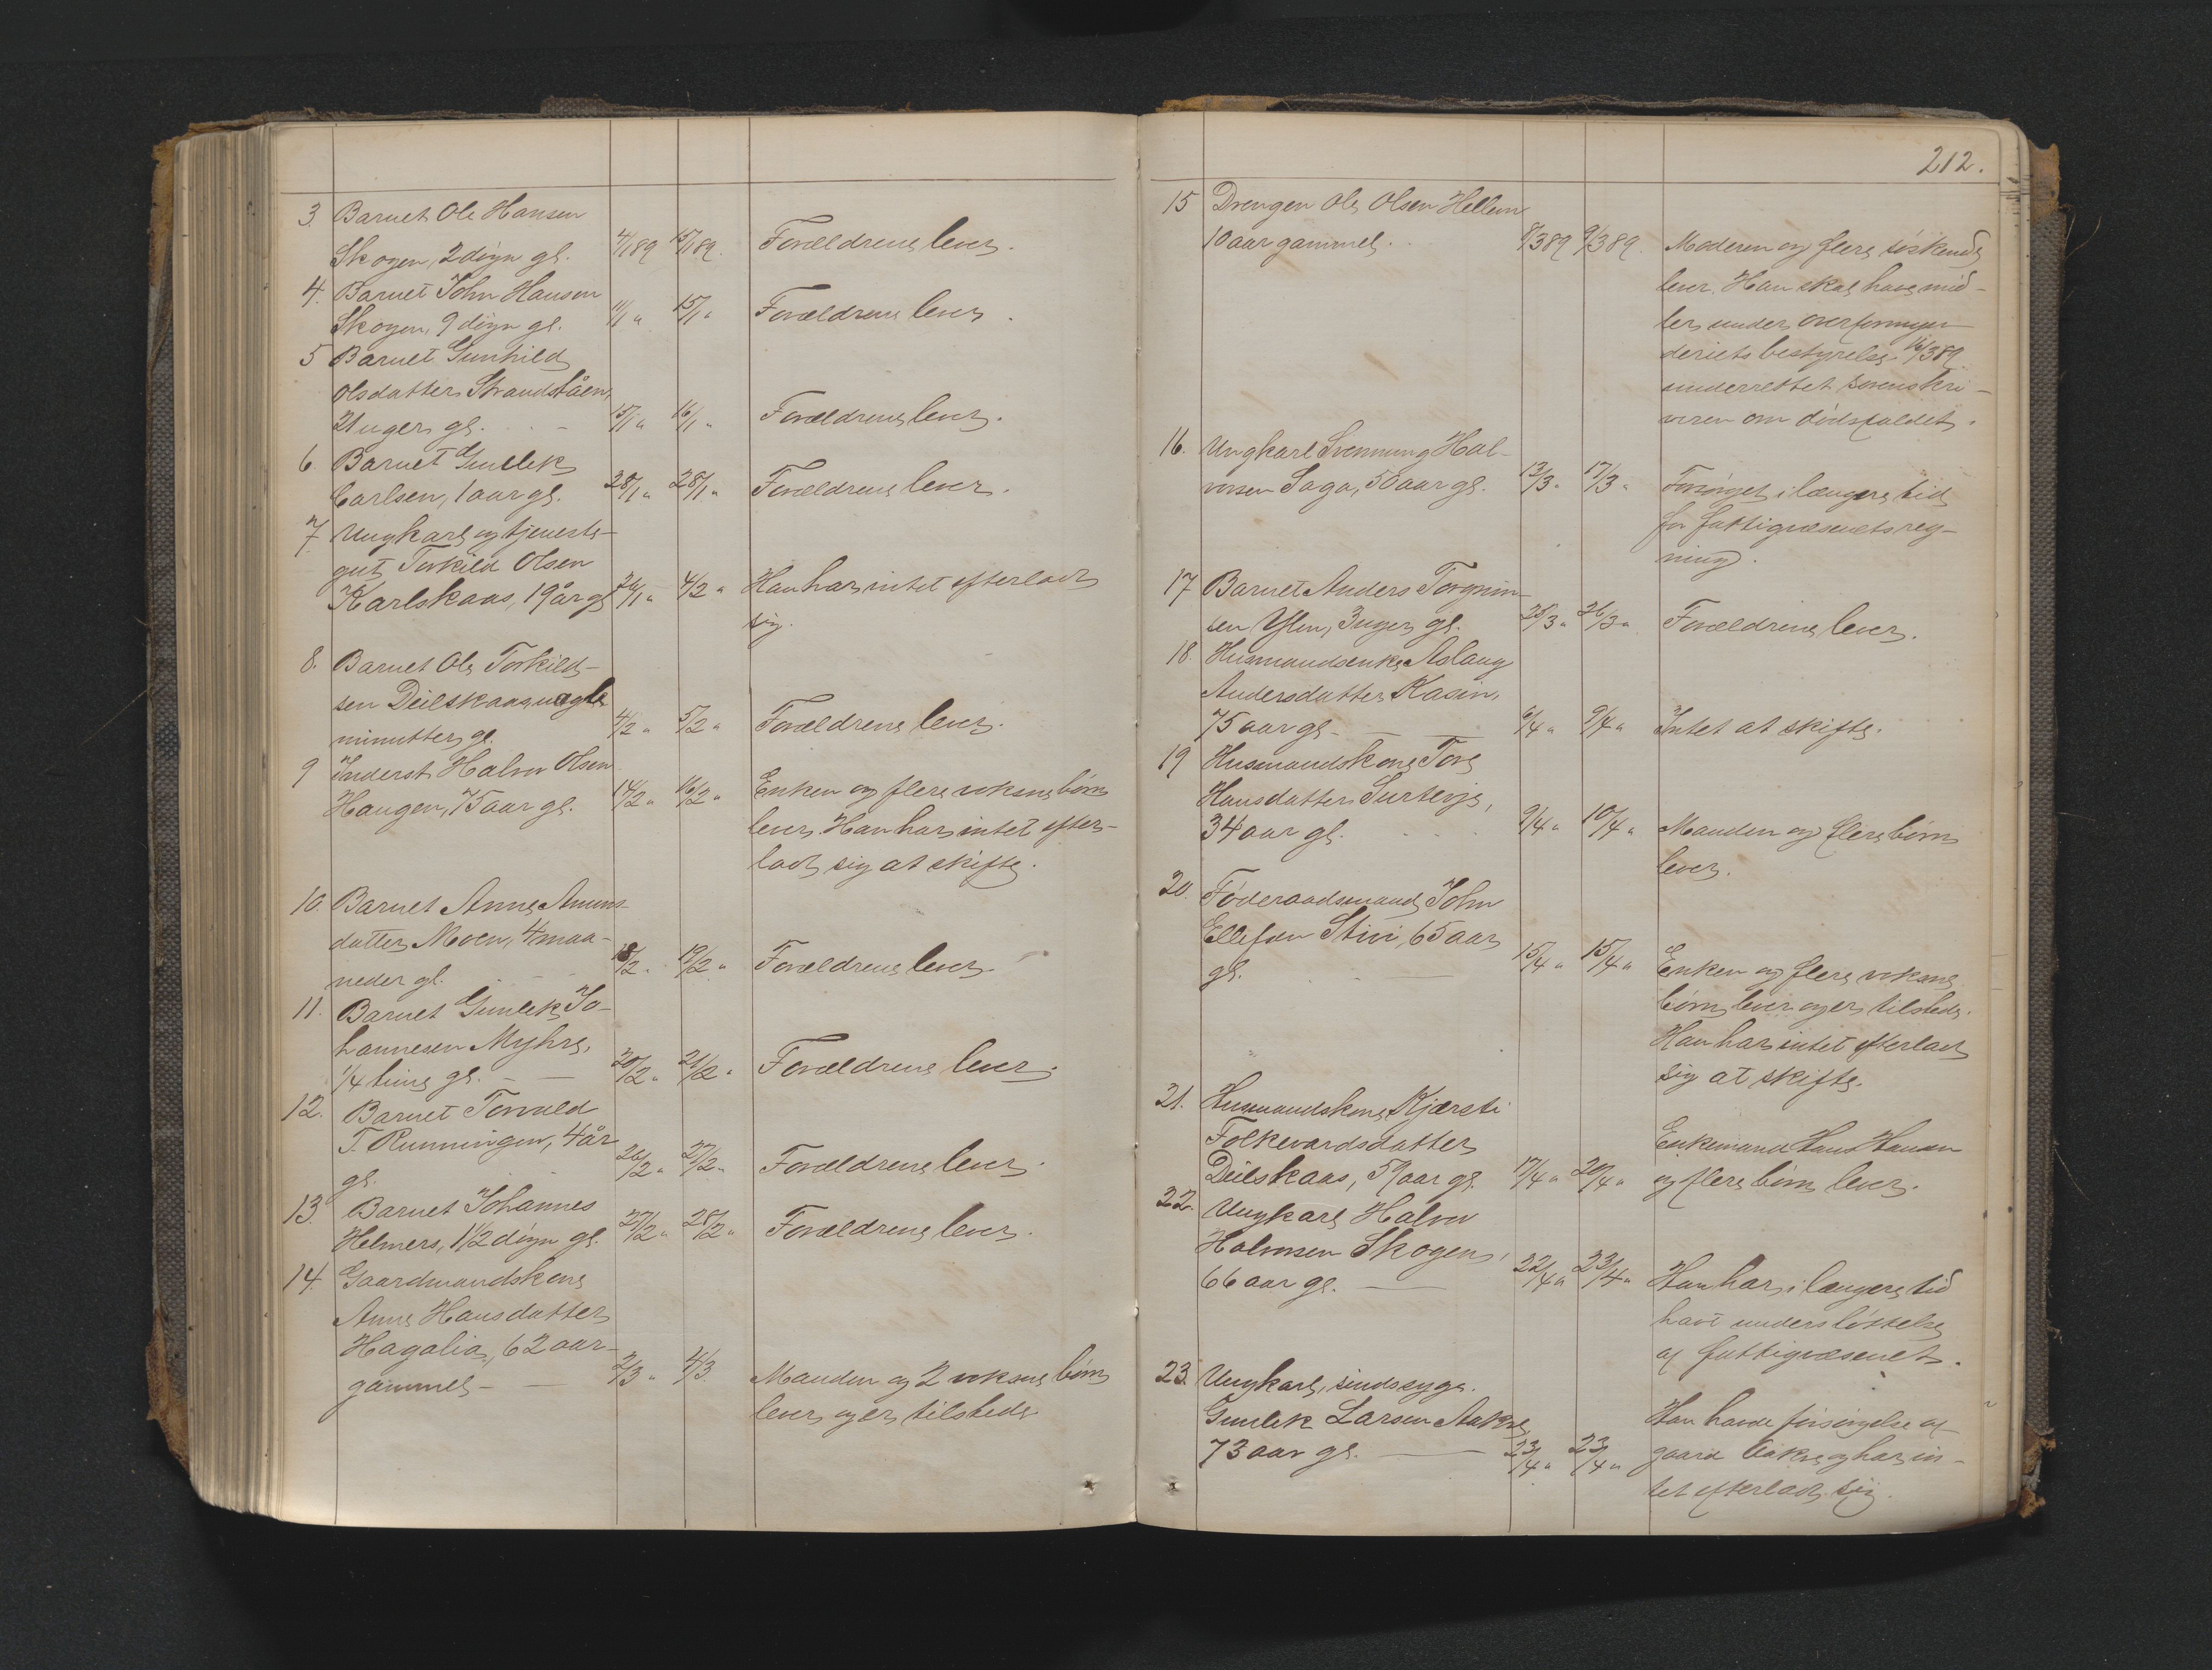 3. Barnet Ole Hansen
Skogen, 2 døgn gl. 4/1 89 15/1 89. Forældrene lever.
4. Barnet John Hansen
Skogen, 9 døgn gl. 11/1 " 15/1 " Forældrene lever.
5 Barnet Gunhild
Olsdatter Strandståen,
2 uger gl. 15/1 " 16/1 " Forældrene lever.
6. Barnet Gunlek
Carlsen, 1 aar gl. 28/1 " 28/1 " Forældrene lever.
7. Ungkarl og tjeneste-
gut Torkild Olsen
Karlskaas, 19 år gl. 26/1 " 4/2 " Han har intet efterladt
sig.
8. Barnet Ole Torkild-
sen Deilskaas, nogle
minutter gl. 4/2 " 5/2 " Forældrene lever.
9 Inderst Halvor Olsen
Haugen, 75 aar gl. 14/2 " 16/2 " Enken og flere voksne børn
lever. Han har intet efter-
ladt sig at skifte.
10. Barnet Anne Amuns-
datter Moen, 4 maa-
neder gl. 18/2 " 19/2 " Forældrene lever.
11. Barnet Gunlek Jo-
hannesen Myhre,
1/4 time gl. 20/2 " 21/2 " Forældrene lever.
12. Barnet Torvald
T. Runningen, 4 år
gl. 26/2 " 27/2 " Forældrene lever.
13. Barnet Johannes
Helmers, 1 1/2 døgn gl. 27/2 " 28/2 " Forældrene lever.
14. Gaardmandskone
Anne Hansdatter
Hagalia, 62 aar
gammel 2/3 " 4/3. Manden og 2 voksne børn
lever og er tilstede
212.
15 Drengen Ole Olsen Hellem
10 aar gammel. 8/3 89 9/3 89. Moderen og flere söskende
lever. Han skal have mid-
ler under overformyn-
deriets bestyrelse 16/3 89
underrettet sorenskri-
veren om dödsfaldet.
16. Ungkarl Svennung Hal-
vorsen Saga, 50 aar gl. 13/3 " 17/3 " Forsørget i længere tid
for fattigvæsenets reg-
ning.
17 Barnet Anders Torgrim-
sen Ylen, 3 uger gl. 25/3 " 26/3 " Forældrene lever.
18. Husmandsenke Aslaug
Andersdatter Kasin,
75 aar gl. 6/4 " 9/4 " Intet at skifte.
19 Husmandskone Tone
Hansdatter Surtevje,
34 aar gl. 9/4 " 10/4 " Manden og flere børn
lever.
20. Föderaadsmand John
Ellefsen Stivi, 65 aar
gl. 15/4 " 15/4 " Enken og flere voksne
børn lever og er tilstede.
Han har intet efterladt
sig at skifte.
21. Husmandskone Kjærsti
Folkevardsdatter Enkemand Hans Hansen
Deilskaas, 59 aar gl. 17/4 " 20/4 " og flere børn lever.
22. Ungkarl Halvor
Halvorsen Skogen,
66 aar gl. 22/4 " 23/4 " Han har i længere tid
havt understöttelse
af fattigvæsenet.
23. Ungkarl, sindssyge
Gunlek Larsen Aakre Han havde forsørgelse af
73 aar gl. 23/4 " 23/4 " gaard Aakre og har in-
tet efterladt sig.